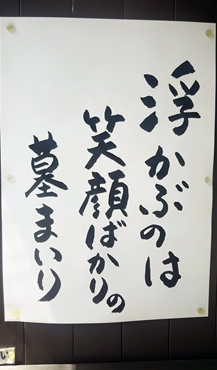 浮かぶのは
笑顔ばかりの
墓まいり